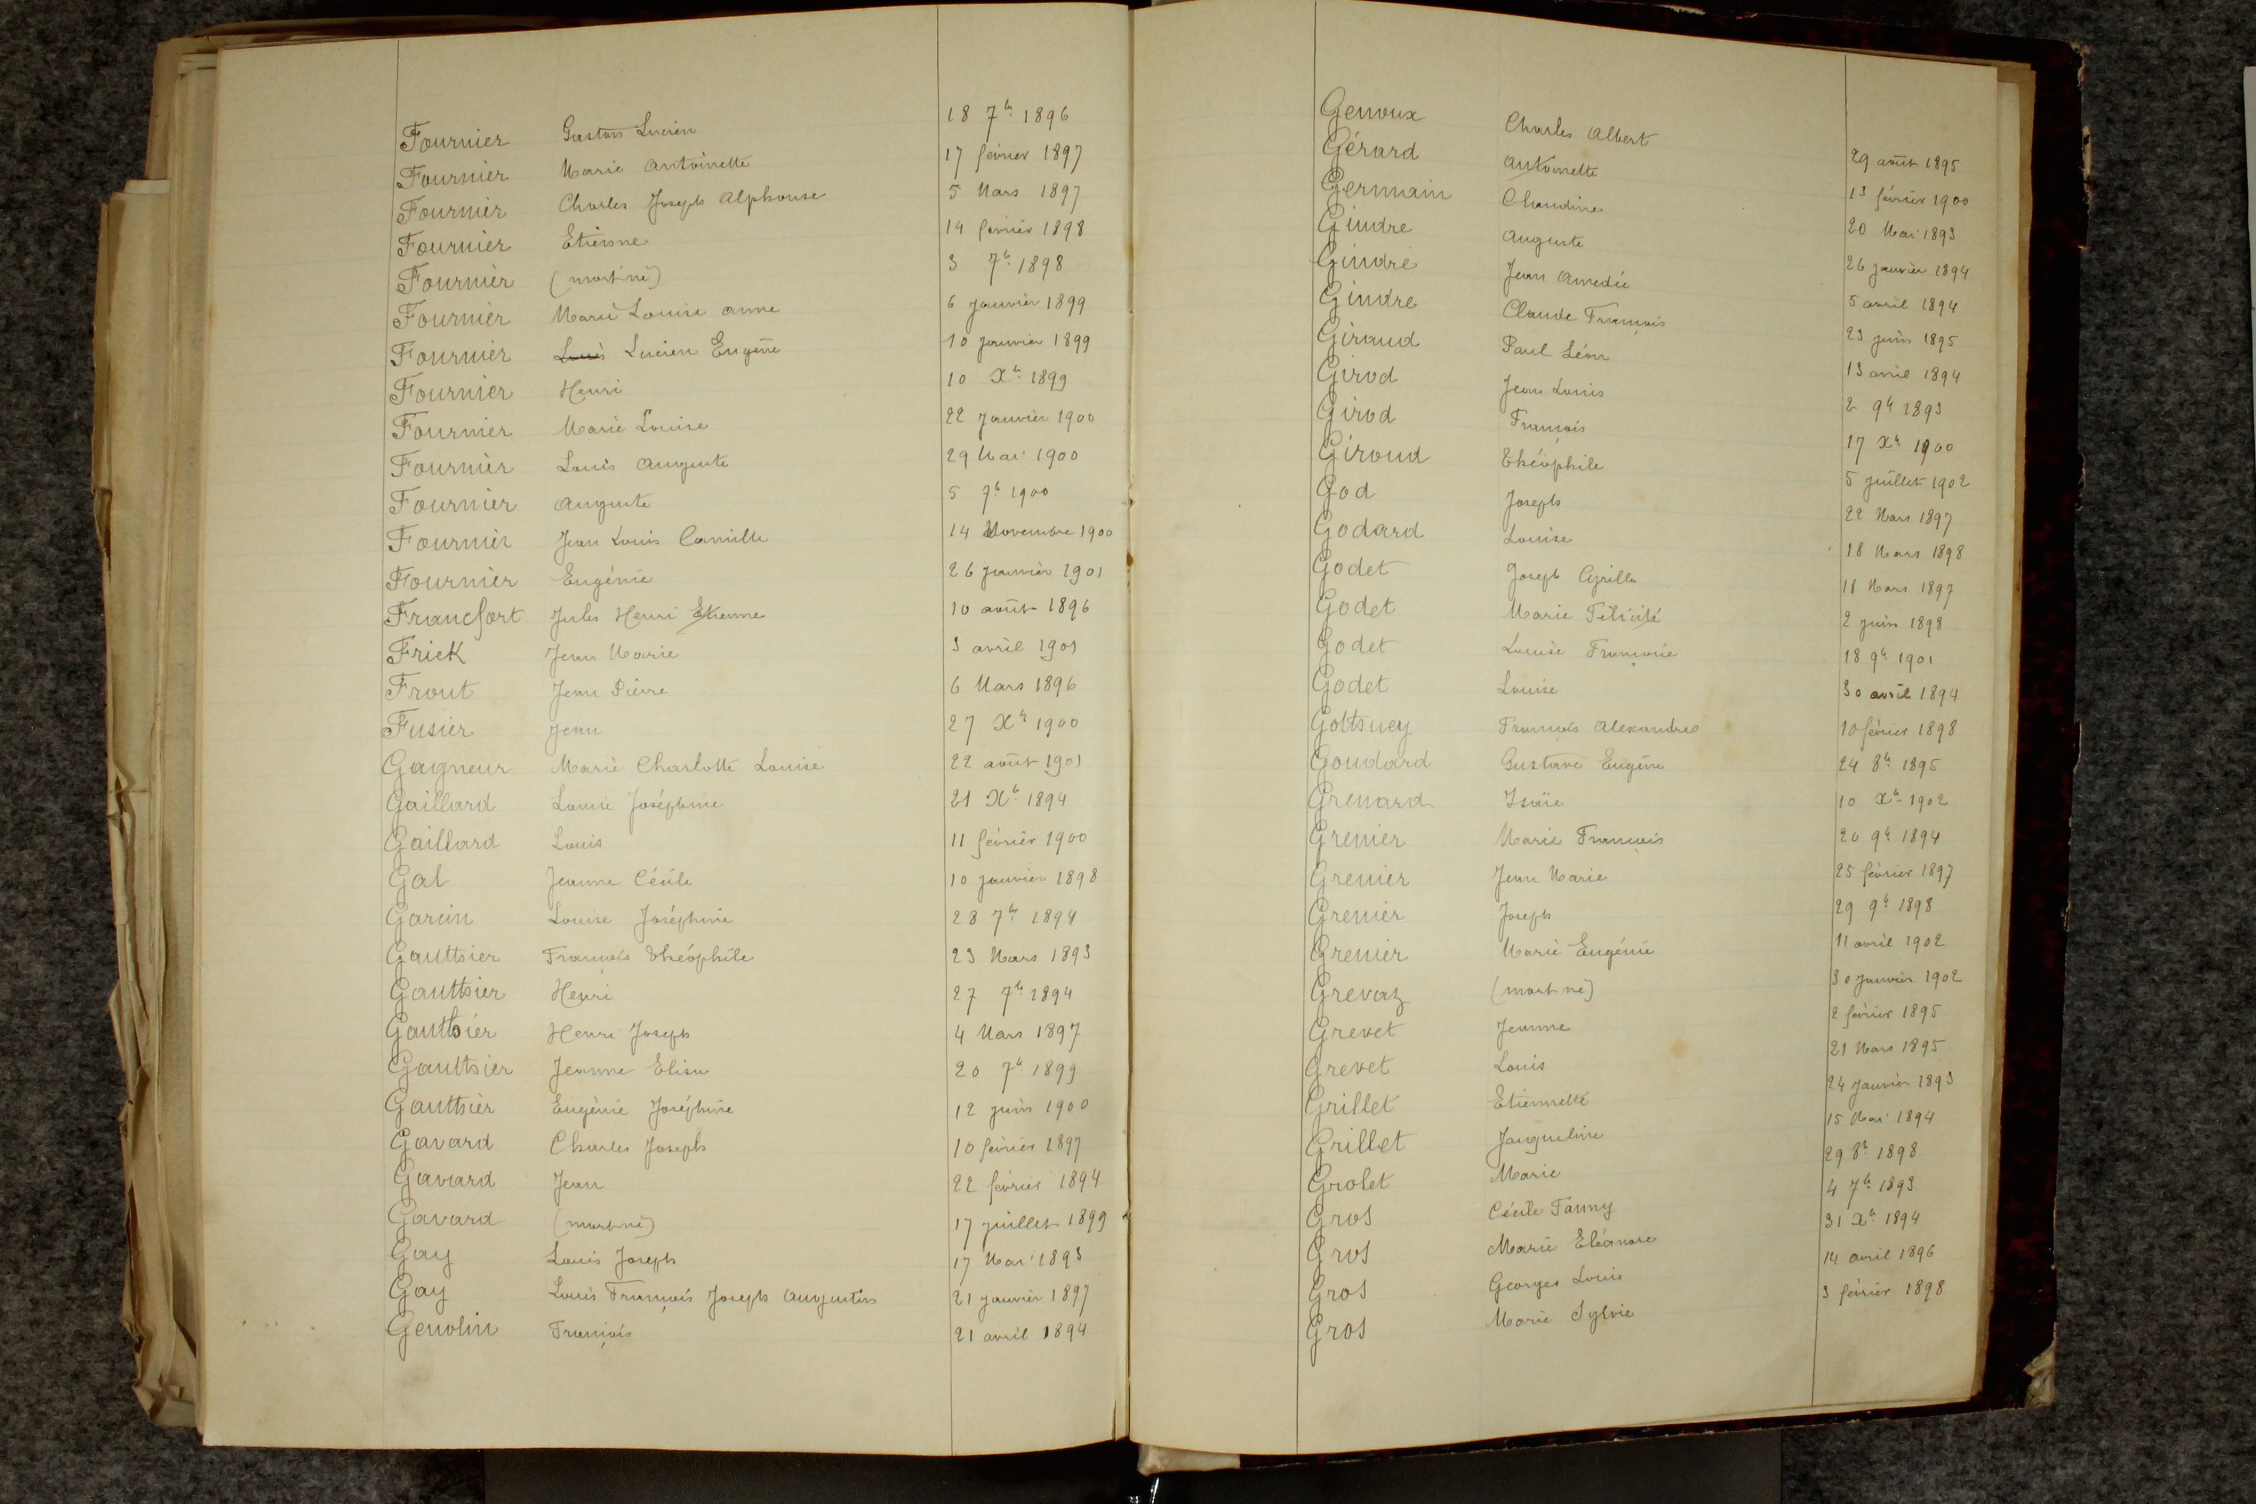 Fournier Gaston Lucien 18 7bre 1896
Fournier Marie Antoinette 17 février 1897
Fournier Charles Joseph Alphonse 5 Mars 1897
Fournier Etienne 14 février 1898
Fournier (mort né) 3 7bre 1898
Fournier Marie Louise Anne 6 Janvier 1899
Fournier Louis Lucien Eugène 10 janvier 1899
Fournier Henri 10 Xbre 1899
Fournier Marie Louise 22 Janvier 1900
Fournier Louis Auguste 29 Mai 1900
Fournier Auguste 5 7bre 1900
Fournier Jean Louis Camille 14 Novembre 1900
Fournier Eugénie 26 janvier 1901
Francfort Jules Henri Etienne 10 août 1896
Frick Jean Marie 3 avril 1901
Frout Jean Pierre 6 Mars 1896
Fusier Jean 27 Xbre 1900
Gagneur Marie Charlotte Louise 22 août 1901
Gaillard Louise Joséphine 21 Xbre 1894
Gaillard Louis 11 février 1900
Gal Jeanne Cécile 10 janvier 1898
Garcin Louise Joséphine 28 7bre 1894
Gautthier François Théophile 23 Mars 1893
Gautthier Henri 27 7bre 1894
Gautthier Henri Joseph 4 Mars 1897
Gautthier Jeanne Elisa 20 7bre 1899
Gautthier Eugénie Joséphine 12 juin 1900
Gavard Charles Joseph 10 février 1897
Gavard Jean 22 février 1894
Gavard (mort né) 17 juillet 1899
Gay Louis Joseph 17 Mai 1893
Gay Louis François Joseph Augustin 21 janvier 1897
Genolin François 21 avril 1894
Genoux Charles Albert 29 août 1895
Gérard Antoinette 13 février 1900
Germain Claudine 20 Mai 1893
Gindre Auguste 26 janvier 1894
Gindre Jean Amedée 5 avril 1894
Gindre Claude François 23 juin 1895
Giraud Paul Léon 13 avril 1894
Girod Jean Louis 2 9bre 1893
Girod François 17 Xbre 1900
Giroud Théophile 5 juillet 1902
God Joseph 22 Mars 1897
Godard Louise 18 Mars 1898
Godet Joseph Cyrille 18 Mars 1897
Godet Marie Félicité 2 juin 1898
Godet Louise Françoise 18 9bre 1901
Godet Louise 30 avril 1894
Gottsuey François Alexandre 10 février 1898
Goudard Gustave Eugène 24 8bre 1895
Grenard Isaïe 10 Xbre 1902
Grenier Marie François 20 9bre 1894
Grenier Jean Marie 25 février 1897
Grenier Joseph 29 9bre 1898
Grenier Marie Eugénie 11 avril 1902
Grevaz (mort né) 30 janvier 1902
Grevet Jeanne 2 février 1895
Grevet Louis 21 Mars 1895
Grillet Etiennette 24 janvier 1893
Grillet Jacqueline 15 Mai 1894
Grolet Marie 29 8bre 1898
Gros Cécile Fanny 4 7bre 1893
Gros Marie Eléanore 31 Xbre 1894
Gros Georges Louis 14 avril 1896
Gros Marie Sylvie 3 février 1898